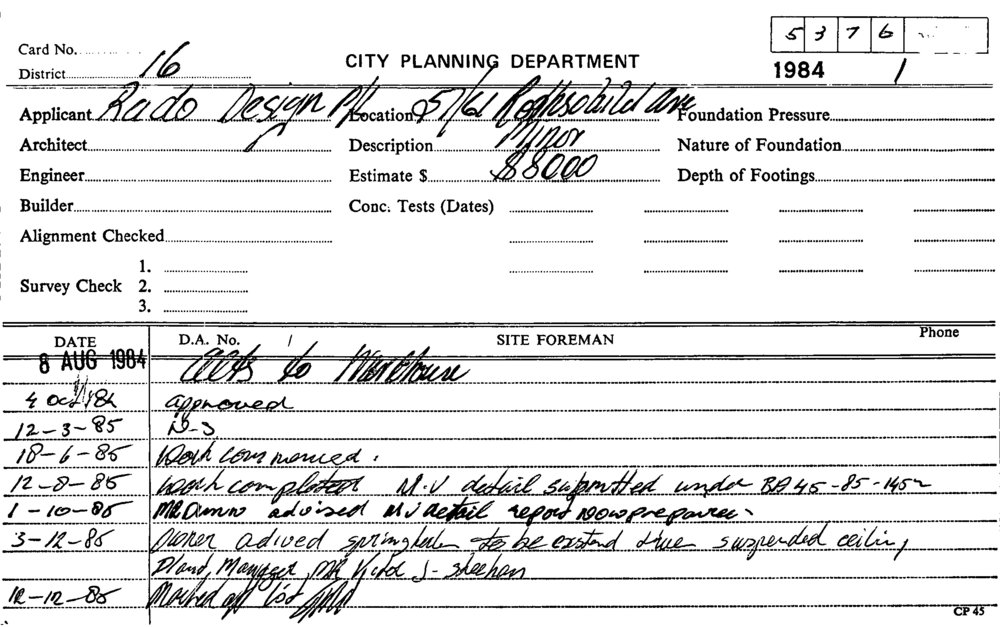 5 3 7 6
Card No.
District 16
CITY PLANNING DEPARTMENT
1984 1
Applicant Rado Design P/L Location 57/61 Rothschild Ave Foundation Pressure
Architect Description Minor Nature of Foundation
Engineer Estimate $ $8000 Depth of Footings
Builder Conc. Tests (Dates)
Alignment Checked
1.
Survey Check 2.
3.
DATE D.A. No. SITE FOREMAN Phone
8 AUG 1984 to Warehouse
4 Oct 84 approved
12-3-85 N-S
18-6-85 Work commenced.
12-8-85 work completed M.V detail submitted under BA 45-85-
1-10-85 MR advised MV detail report now prepared
3-12-85 advised to be suspended ceiling
Manager MR J- Sheehan
12-12-85 Marked off list
CP 45